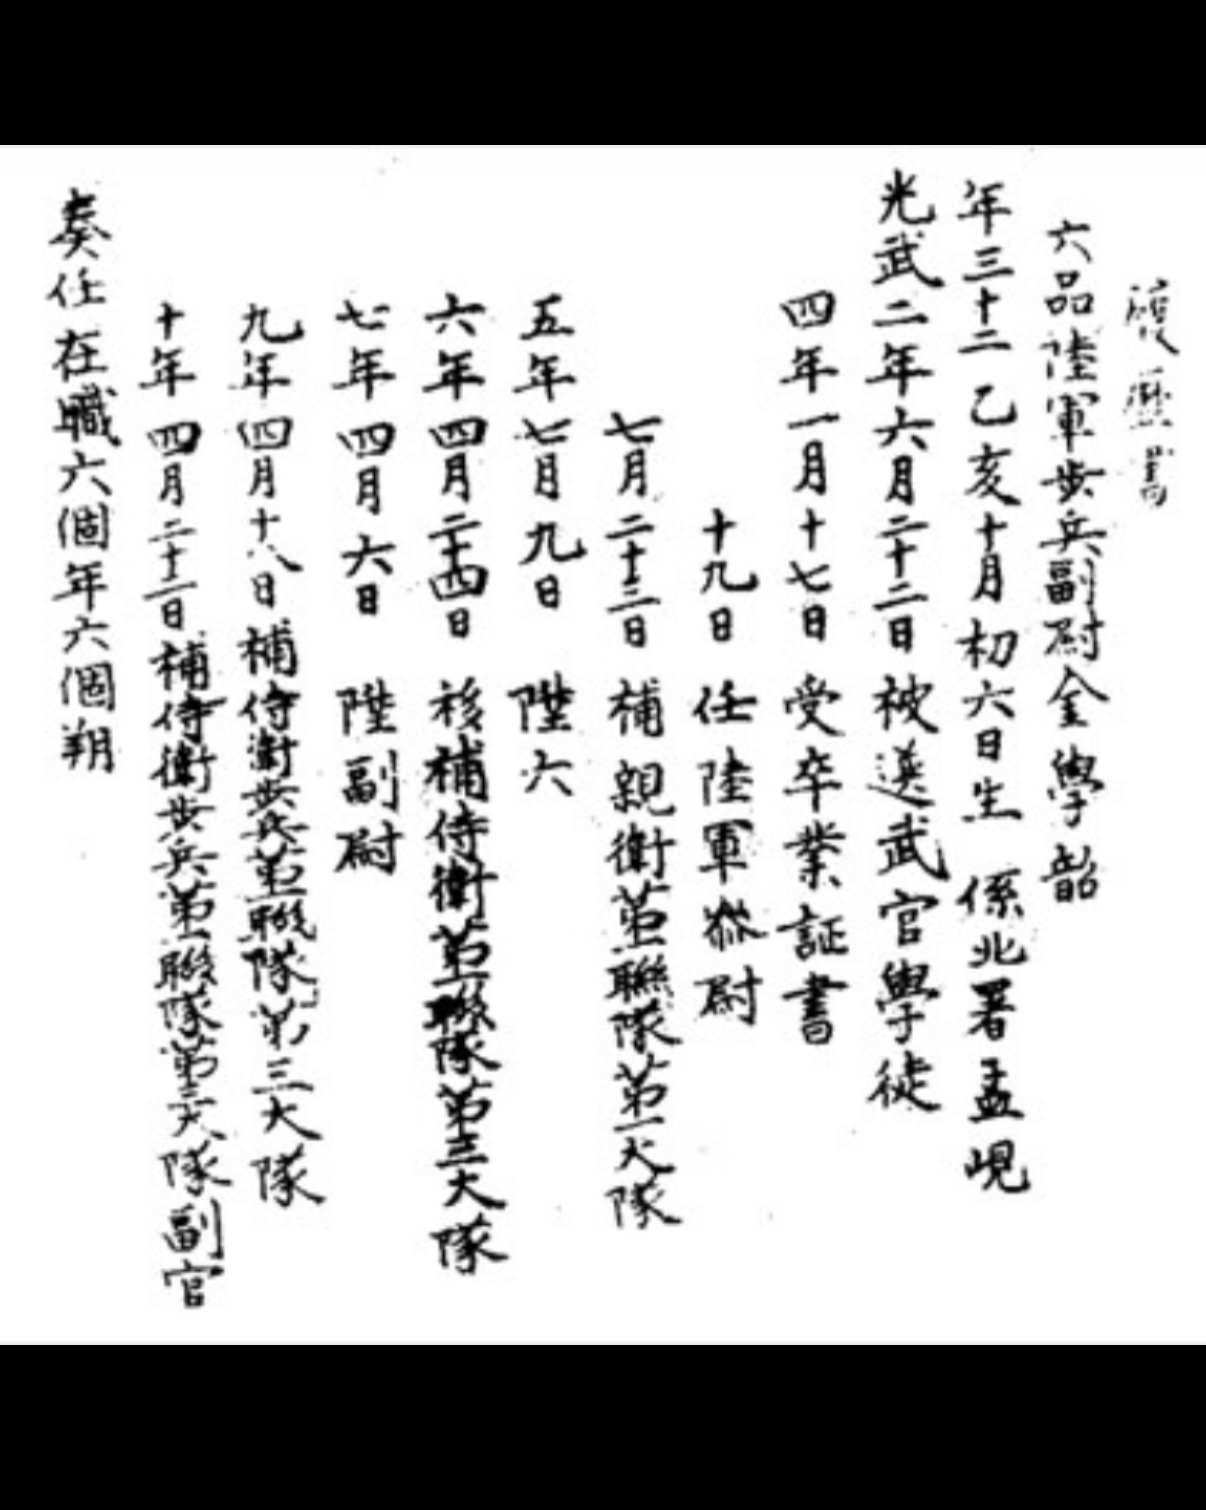 履歷書
六品陸軍步兵副尉金學韶
年三十二 乙亥十月初六日生 係北署孟峴
光武二年六月二十二日被選武官學徒
四年一月十七日受卒業証書
十九日任陸軍叅尉
七月二十三日補親衛第一聯隊第一大隊
五年七月九日陞六
六年四月二十四日移補侍衛第二聯隊第三大隊
七年四月六日陞副尉
九年四月十八日補侍衛步兵第一聯隊第三大隊
十年四月二十二日補侍衛步兵第一聯隊第三大隊副官
奏任在職六個年六個朔